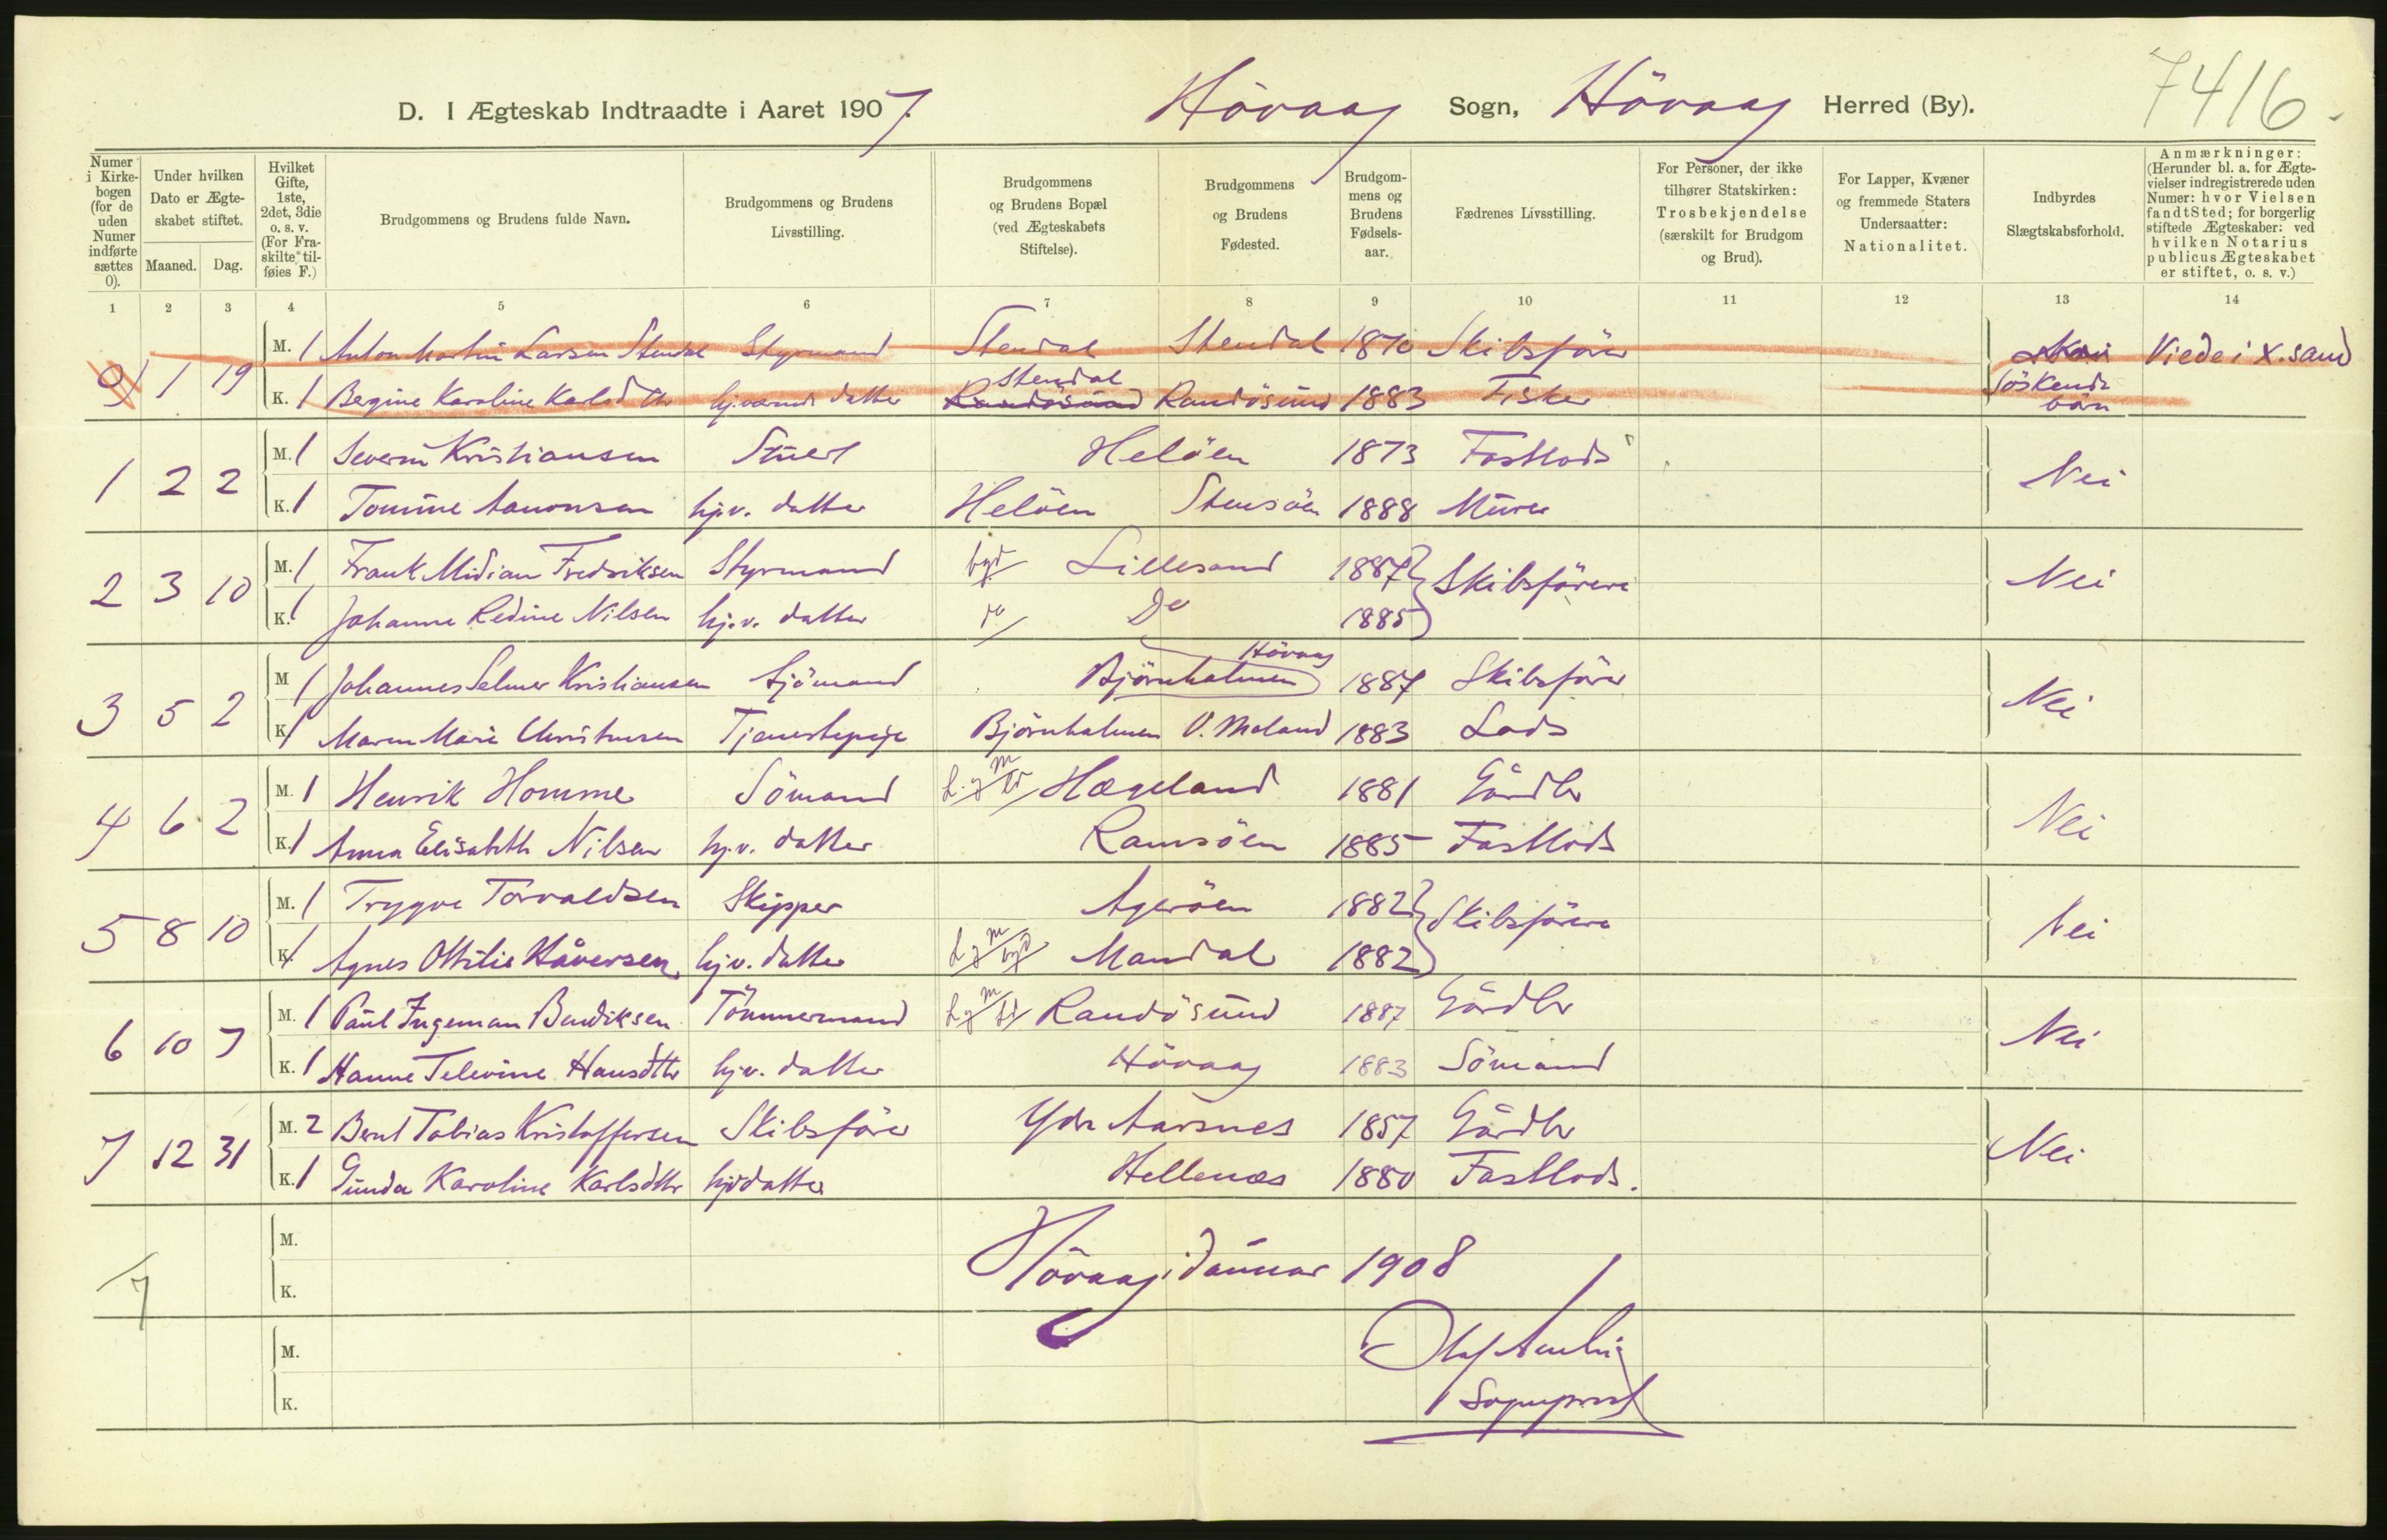 D. I Ægteskab Indtraadte i Aaret 1907. Hövaag Sogn, Hövaag Herred (By). 7416.
Numer i Kirkebogen (for de uden Numer indførte sættes 0).
Under hvilken Dato er Ægteskabet stiftet.
Maaned. Dag.
Hvilket Gifte, 1ste, 2det, 3die o. s. v. (For Fraskilte tilføies F.)
Brudgommens og Brudens fulde Navn.
Brudgommens og Brudens Livsstilling.
Brudgommens og Brudens Bopæl (ved Ægteskabets Stiftelse).
Brudgommens og Brudens Fødested.
Brudgommens og Brudens Fødselsaar.
Fædrenes Livsstilling.
For Personer, der ikke tilhører Statskirken: Trosbekjendelse (særskilt for Brudgom og Brud).
For Lapper, Kvæner og fremmede Staters Undersaatter: Nationalitet.
Indbyrdes Slægtskabsforhold.
Anmærkninger: (Herunder bl. a. for Ægtevielser indregistrerede uden Numer: hvor Vielsen fandt Sted; for borgerlig stiftede Ægteskaber: ved hvilken Notarius publicus Ægteskabet er stiftet, o. s. v.)
1 2 3 4 5 6 7 8 9 10 11 12 13 14
M. 1 Anton Martin Larsen Stendal Styrmand Stendal Stendal 1870 Skibsförer Viede i X.sand
0 1 19
K. 1 Bergine Karoline Karlsdtr hj.værende datter Stendal Randösund Randösund 1883 Fisker Söskendebörn
M. 1 Severin Kristiansen Stuert Helöen 1873 Fastlods
1 2 2 Nei
K. 1 Tomine Aanonsen hj.v. datter Helöen Stensöen 1888 Murer
M. 1 Frank Midian Fredriksen Styrmand byd Lillesand 1887 Skibsförere
2 3 10 Nei
K. 1 Johanne Redine Nilsen hj.v. datter do Do 1885
M 1 Johannes Selmer Kristiansen Sjömand Björnholmen Hövaag 1887 Skibsförer
3 5 2 Nei
K 1 Maren Marie Christensen Tjenestepige Björnholmen V. Moland 1883 Lods
M. 1 Henrik Homme Sömand Hægeland 1881 Gårdbr
4 6 2 Nei
K. 1 Anna Elisabeth Nilsen hj.v. datter Ramsöen 1885 Fastlods
M. 1 Trygve Torvaldsen Skipper Ageröen 1882 Skibsförere
5 8 10 Nei
K 1 Agnes Ottilie Håversen hj.v. datter Mandal 1882
M. 1 Paul Ingeman Bendiksen Tömmermand Randösund 1887 Gårdbr
6 10 7 Nei
K. 1 Hanne Televine Hansdtr hj.v. datter Hövaag 1883 Sömand
M. 2 Bernt Tobias Kristoffersen Skibsförer Ydr Aarsnes 1857 Gårdbr
7 12 31 Nei
K. 1 Gunda Karoline Karlsdtr hjvdatter Hellenes 1880 Fastlods.
M.
7 Hövaag i Januar 1908
K.
M. Olaf
K. Sogneprest